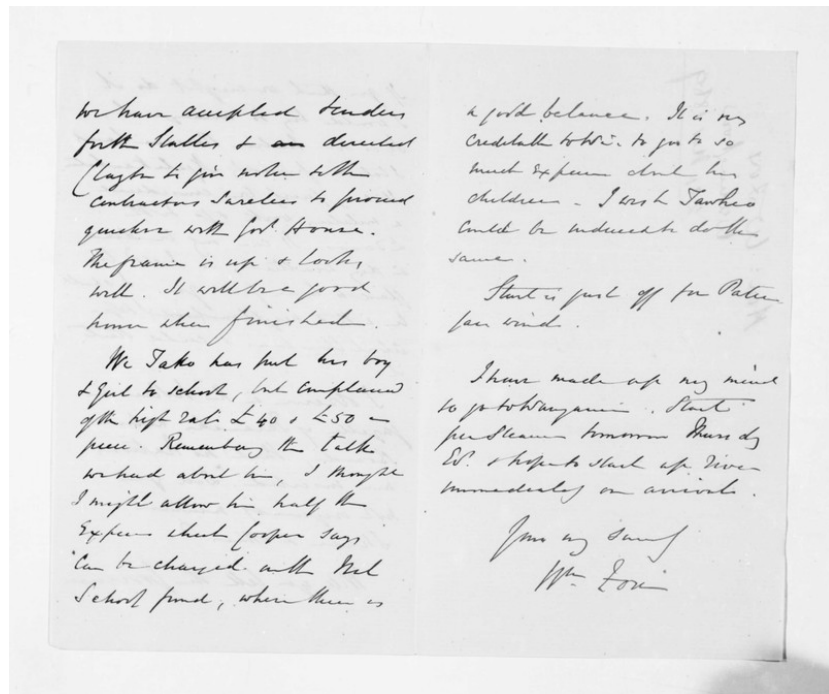 we have accepted tenders
for the Stables & directed
Clayton to give notice to the
contractors Sureties to proceed
quicker with Govt. House.
The frame is up & looks
well. It will be a good
house when finished.
Wi Tako has put his boy
& girl to school, but complained
of the high rate £40 & £50 a
piece. Remembering the talk
we had about him, I thought
I might allow him half the
Expense which Cooper says
can be charged on the Nat
School fund, where there is
a good balance. It is very
creditable to Wi. to go to so
much Expense about his
children - I wish Tawhio
could be induced to do the
same.
Sturt is just off for Patea
fair wind.
I have made up my mind
to go to Wanganui. Start
per Steamer tomorrow Thursday
& hope to start up river
immediately on arrival.
Yours very Sincly
Wm